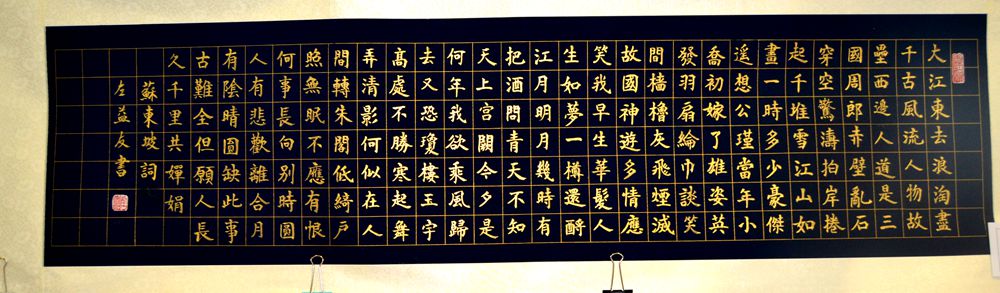 大江東去浪淘盡
千古風流人物故
壘西邊人道是三
國周郎赤壁亂石
穿空驚濤拍岸捲
起千堆雪江山如
畫一時多少豪傑
遙想公瑾當年小
喬初嫁了雄姿英
發羽扇綸巾談笑
間檣櫓灰飛煙滅
故國神遊多情應
笑我早生華髮人
生如夢一樽還酹
江月明月幾時有
把酒問青天不知
天上宮闕今夕是
何年我欲乘風歸
去又恐瓊樓玉宇
高處不勝寒起舞
弄清影何似在人
間轉朱閣低綺戶
照無眠不應有恨
何事長向別時圓
人有悲歡離合月
有陰晴圓缺此事
古難全但願人長
久千里共嬋娟
蘇東坡詞
左益友書